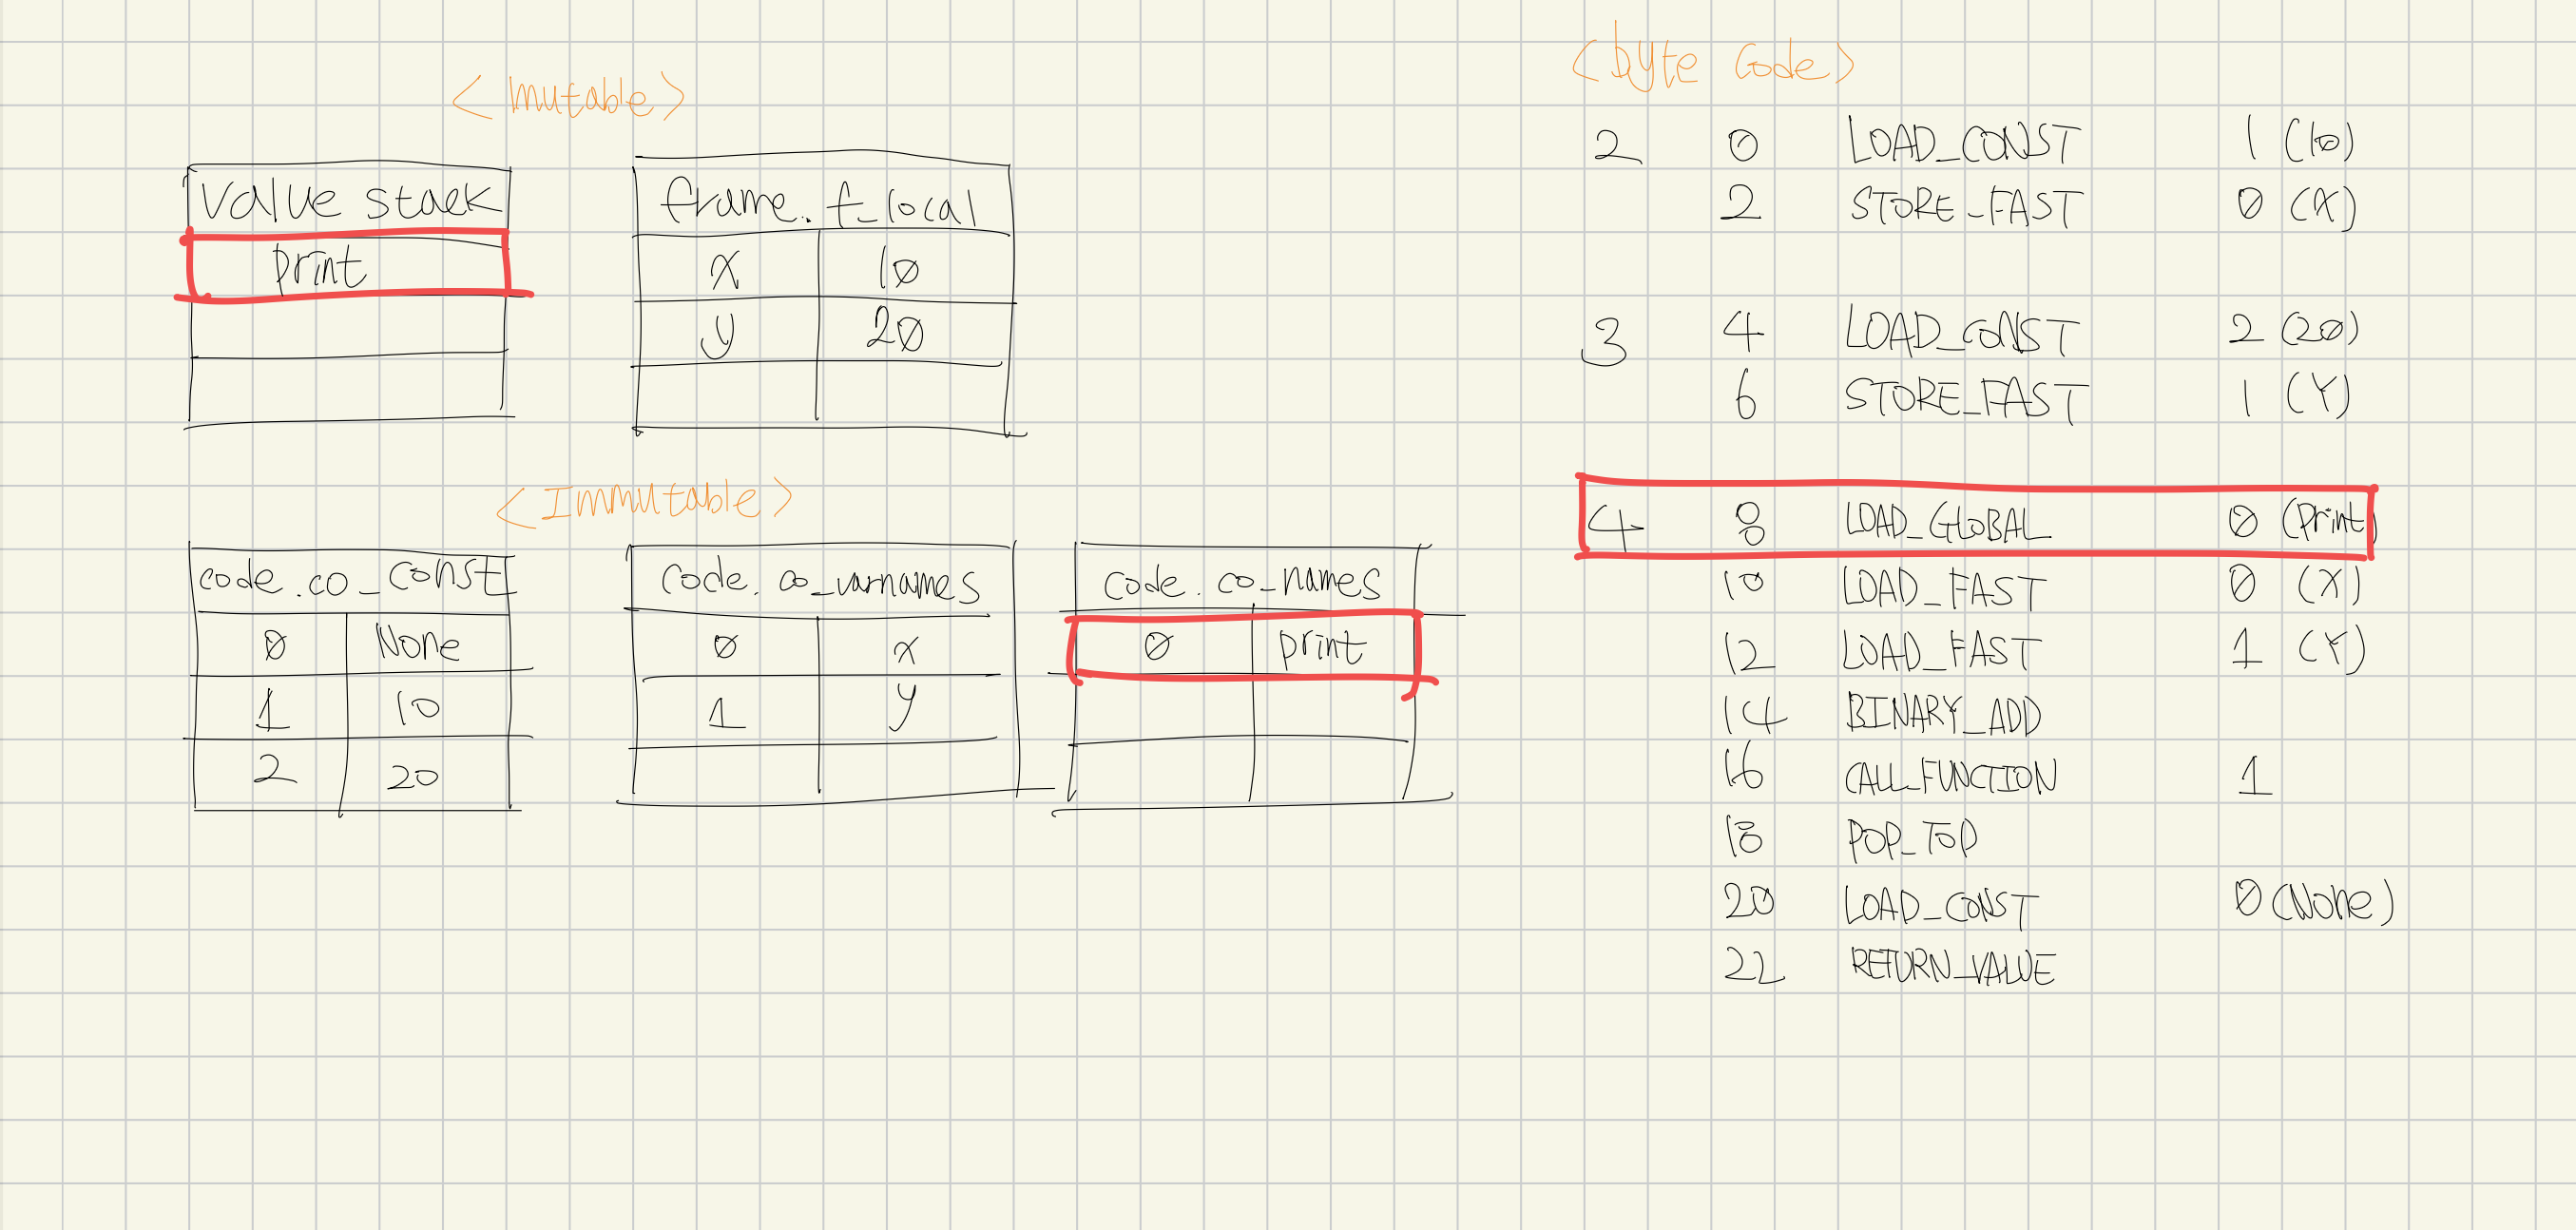 <Mutable>
value stack
print
frame.f_local
x 10
y 20
<Immutable>
code.co_const
0 None
1 10
2 20
code.co_varnames
0 x
1 y
code.co_names
0 print
<byte code>
2 0 LOAD_CONST 1 (10)
2 STORE_FAST 0 (X)
3 4 LOAD_CONST 2 (20)
6 STORE_FAST 1 (Y)
4 8 LOAD_GLOBAL 0 (Print)
10 LOAD_FAST 0 (X)
12 LOAD_FAST 1 (Y)
14 BINARY_ADD
16 CALL_FUNCTION 1
18 POP_TOP
20 LOAD_CONST 0 (None)
22 RETURN_VALUE